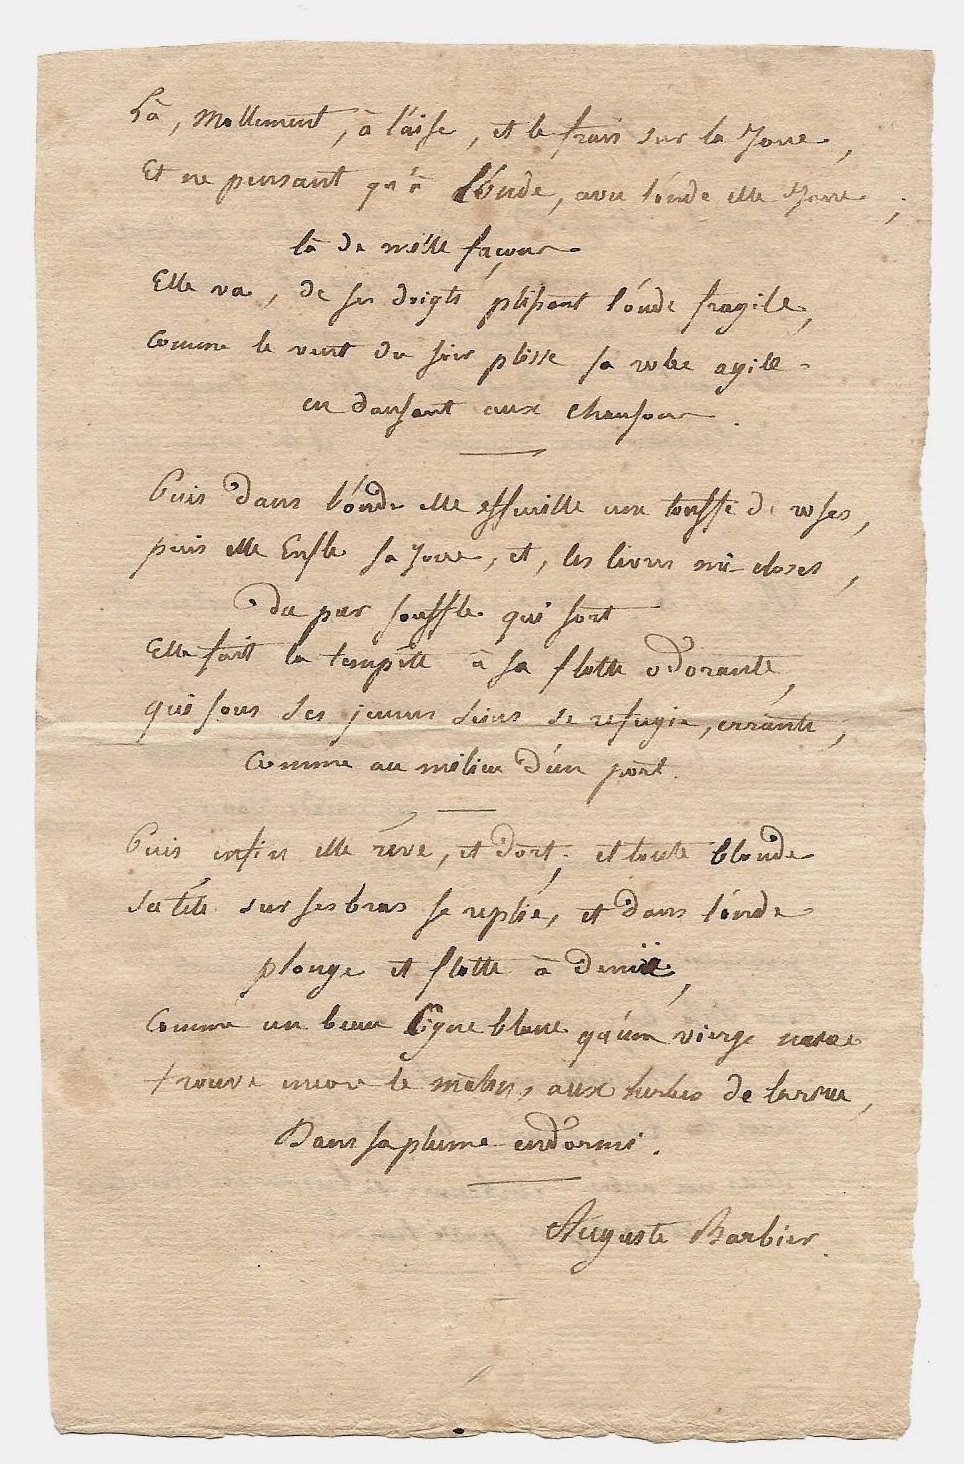 Là, mollement, à l'aise, et le frais sur la Joue,
Et ne pensant qu'à l'Onde, avec l'onde elle Joue,
là de mille façons
Elle va, de ses doigts plissant l'onde fragile,
comme le vent du soir plisse sa robe agile
en dansant aux chansons.
Puis dans l'onde elle effeuille une touffe de roses,
puis elle Enfle sa Joue, et, les lèvres mi-closes,
du pur souffle qui sort
Elle fait la tempête à sa flotte odorante,
qui sous ses jeunes seins se refugie, errante,
comme au milieu d'un port.
Puis enfin elle rêve, et dort; et toute blonde
sa tête sur ses bras se replie, et dans l'onde
plonge et flotte à demi,
comme un beau Cigne blanc qu'une vierge
trouve encor le matin, aux herbes de
Dans sa plume endormi.
Auguste Barbier.